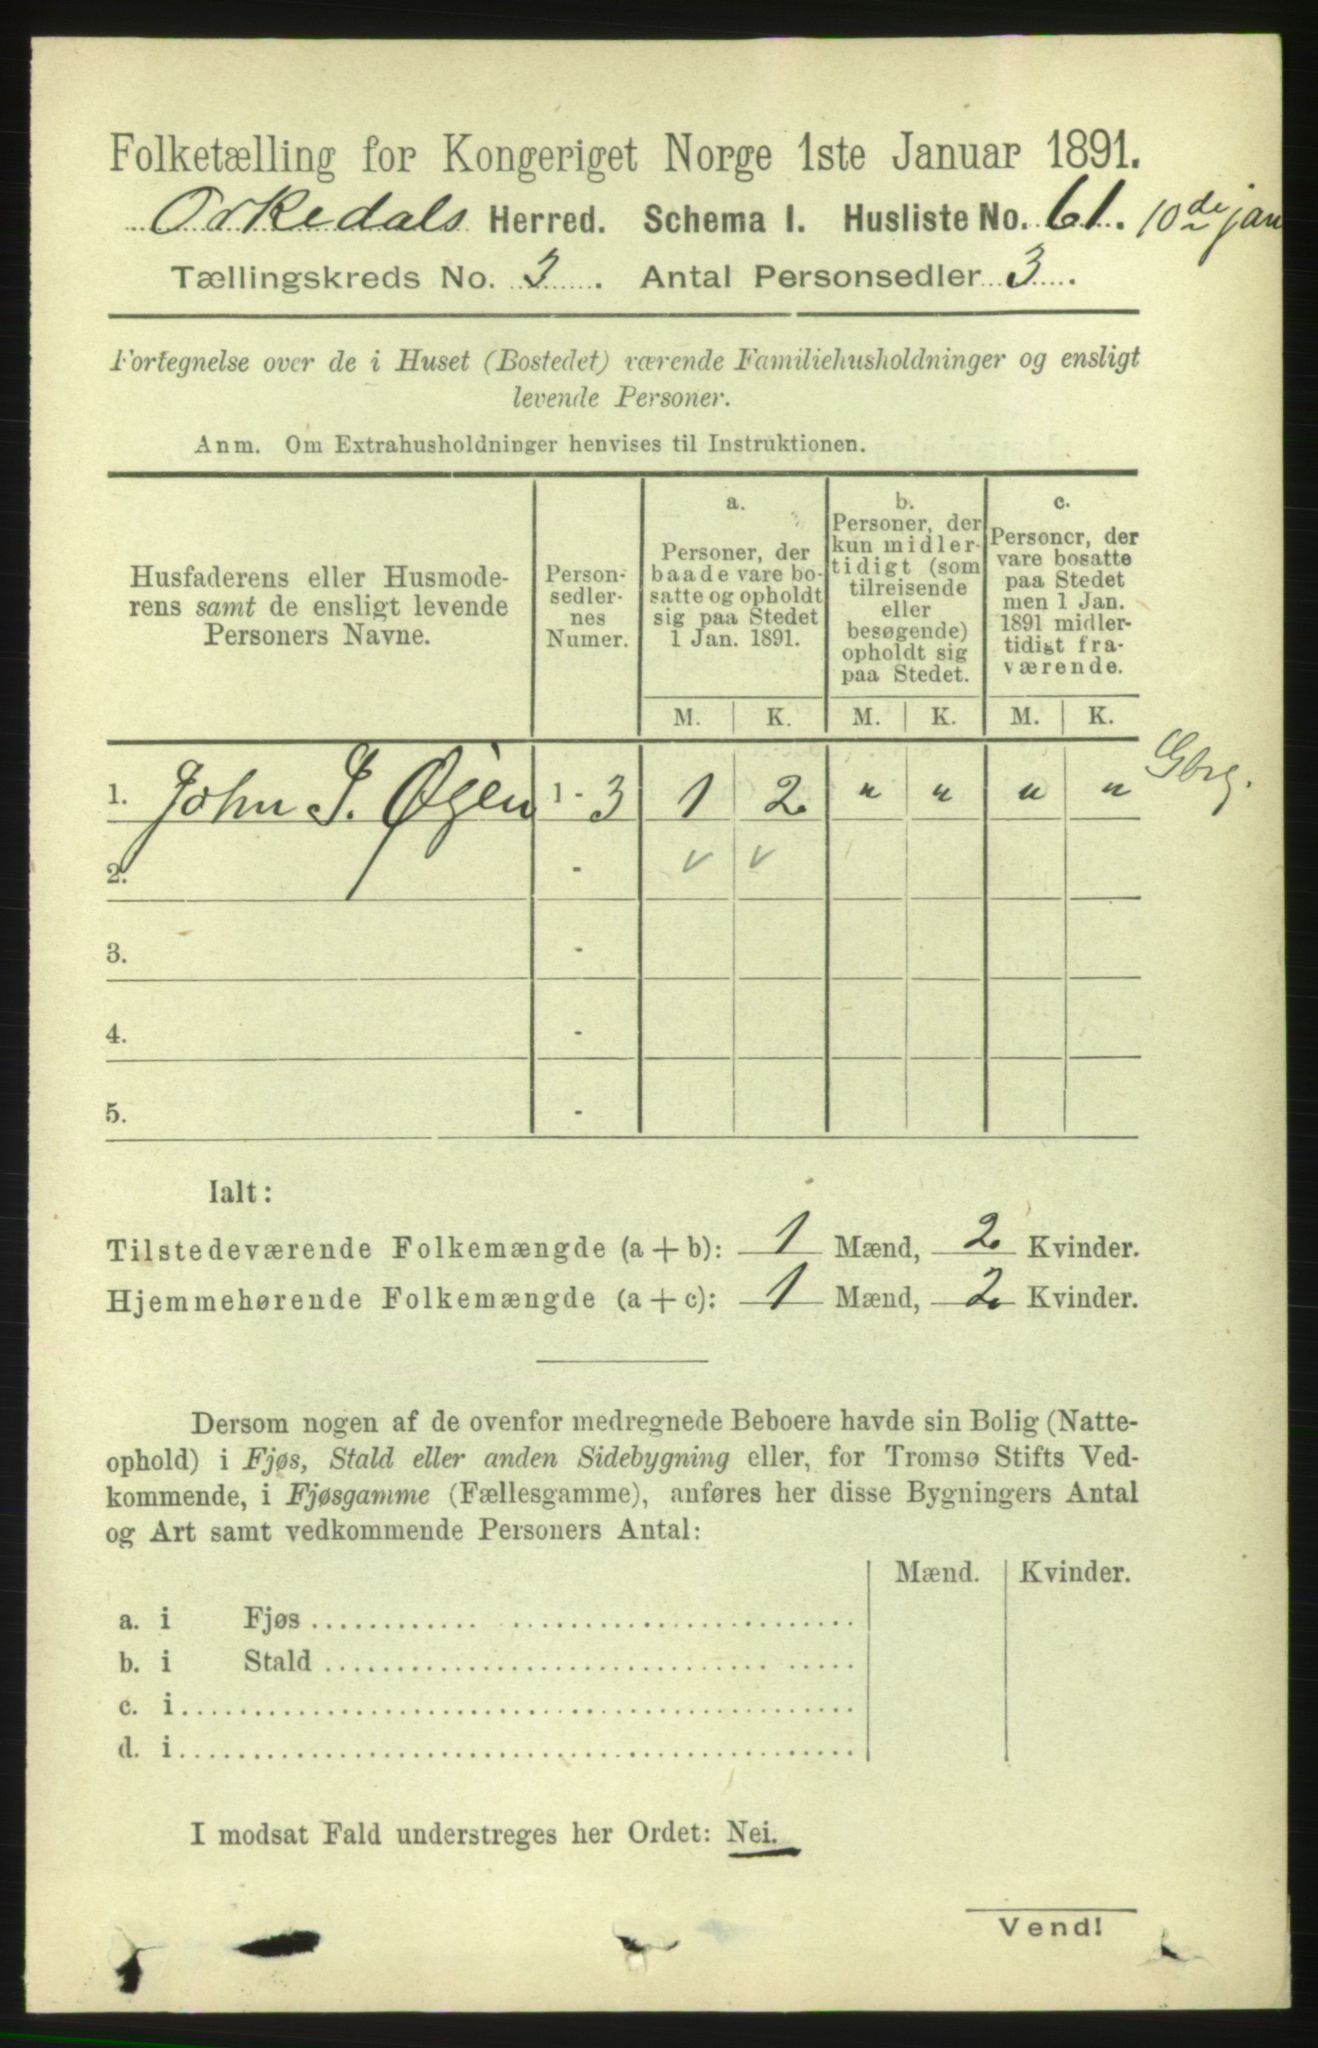 Folketælling for Kongeriget Norge 1ste Januar 1891.
Orkedals Herred. Schema I. Husliste No. 61. 10de jan
Tællingskreds No. 3. Antal Personsedler 3.
Fortegnelse over de i Huset (Bostedet) værende Familiehusholdninger og ensligt
levende Personer.
Anm. Om Extrahusholdninger henvises til Instruktionen.
Husfaderens eller Husmode-
rens samt de ensligt levende
Personers Navne.
Person-
sedler-
nes
Numer.
a.
Personer, der
baade vare bo-
satte og opholdt
sig paa Stedet
1 Jan. 1891.
b.
Personer, der
kun midler-
tidigt (som
tilreisende
eller
besøgende)
opholdt sig
paa Stedet.
c.
Personer, der
vare bosatte
paa Stedet
men 1 Jan.
1891 midler-
tidigt fra-
værende.
M. K. M. K. M. K.
1. John J. Øyen 1 - 3 1 2 " " " "
2. - v v
3. -
4. -
5. -
Ialt:
Tilstedeværende Folkemængde (a + b): 1 Mænd, 2 Kvinder.
Hjemmehørende Folkemængde (a + c): 1 Mænd, 2 Kvinder.
Dersom nogen af de ovenfor medregnede Beboere havde sin Bolig (Natte-
ophold) i Fjøs, Stald eller anden Sidebygning eller, for Tromsø Stifts Ved-
kommende, i Fjøsgamme (Fællesgamme), anføres her disse Bygningers Antal
og Art samt vedkommende Personers Antal:
Mænd. Kvinder.
a. i Fjøs
b. i Stald
c. i
d. i
I modsat Fald understreges her Ordet: Nei.
Vend!